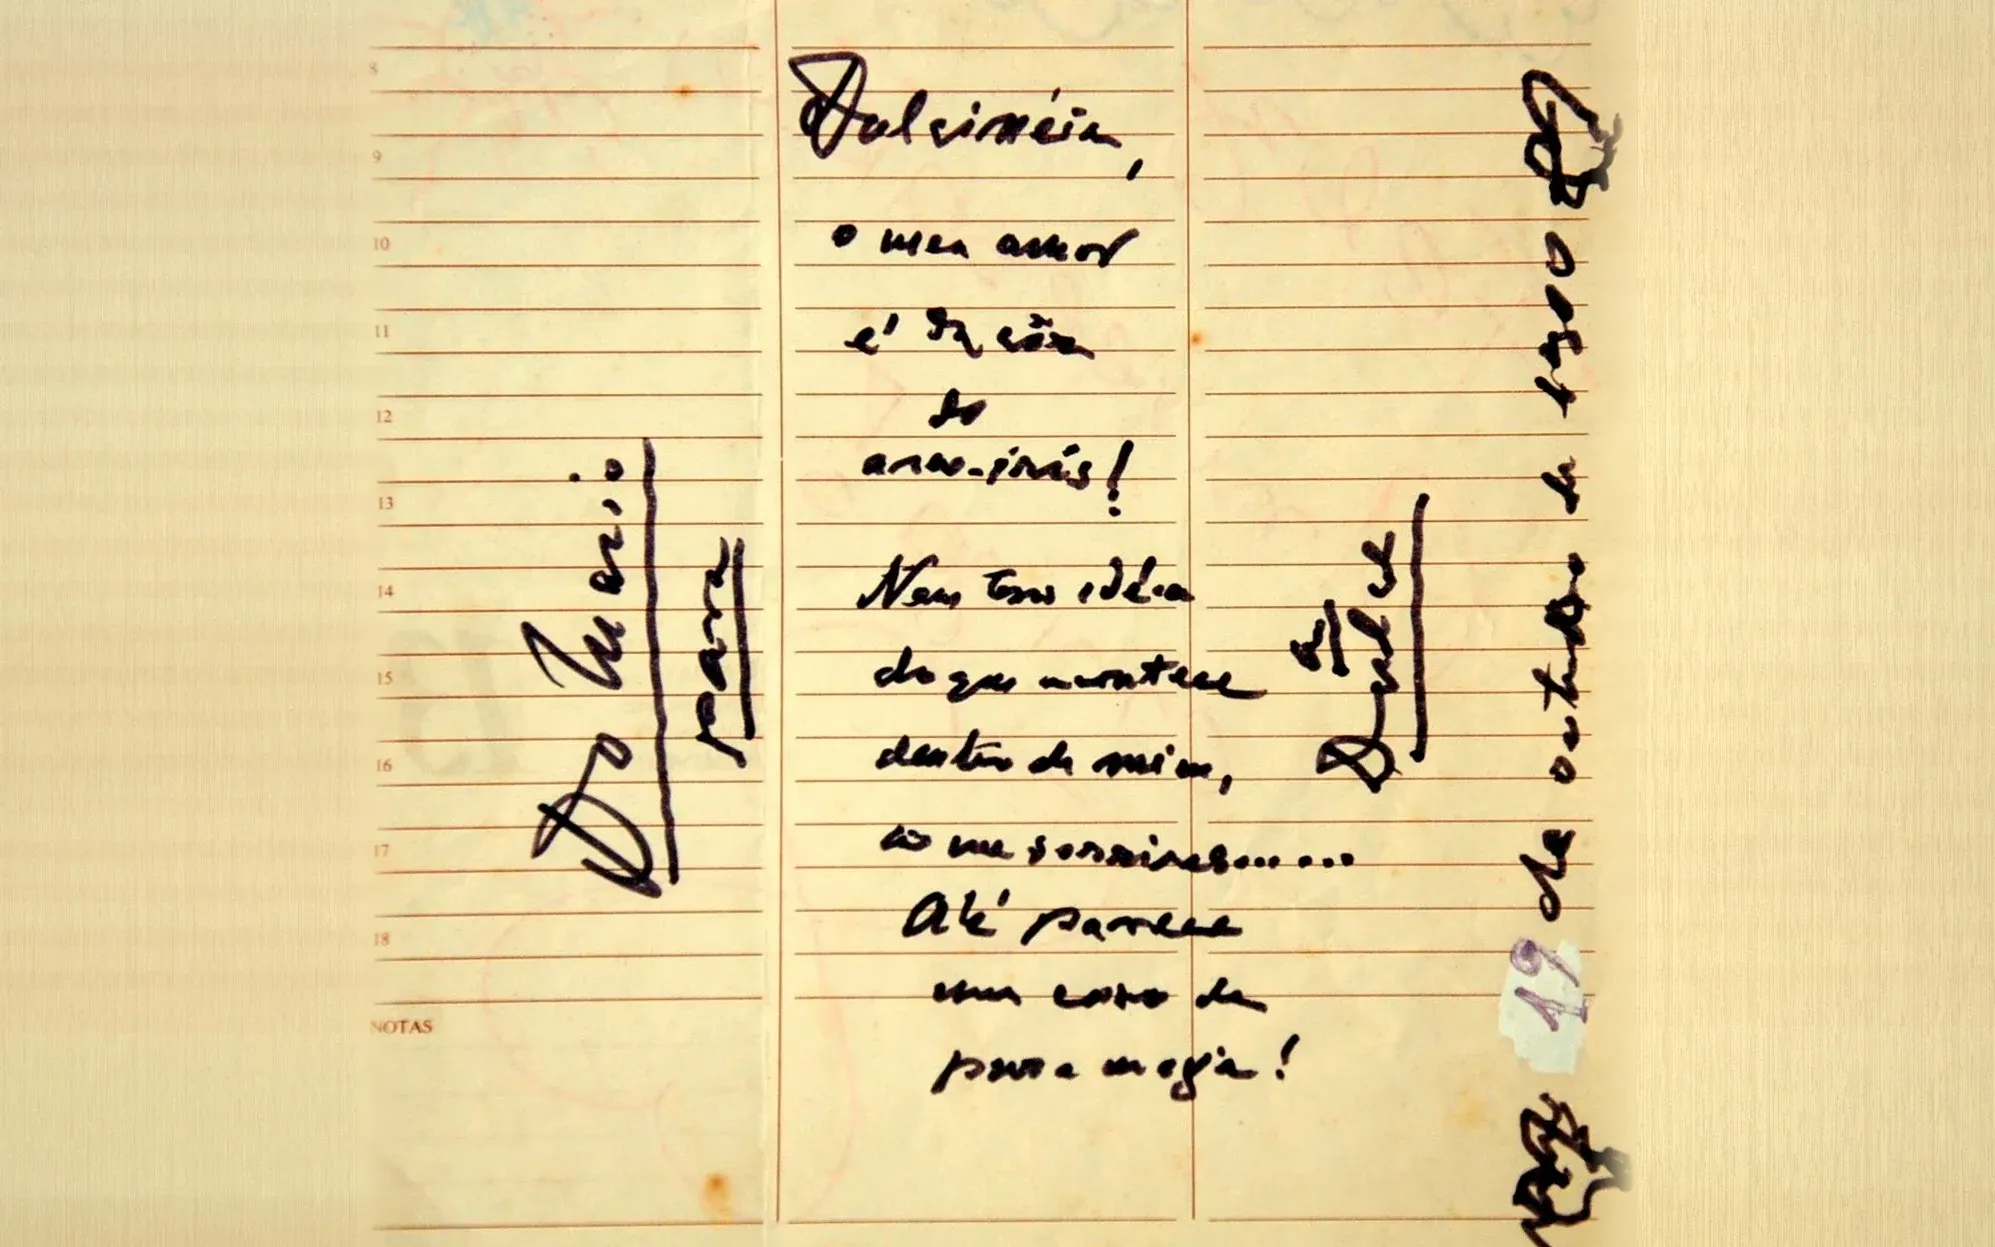 8
9
10
11
12
13
14
15
16
17
18
NOTAS
Do Mario
para
Dulcinéia,
o meu amor
é da côr
do
arco-íris!
Nem tens idéia
do que acontece
dentro de mim,
ao me sorrires......
Até parece
uma coisa de
pura magia!
a
Dulce
19 de outubro de